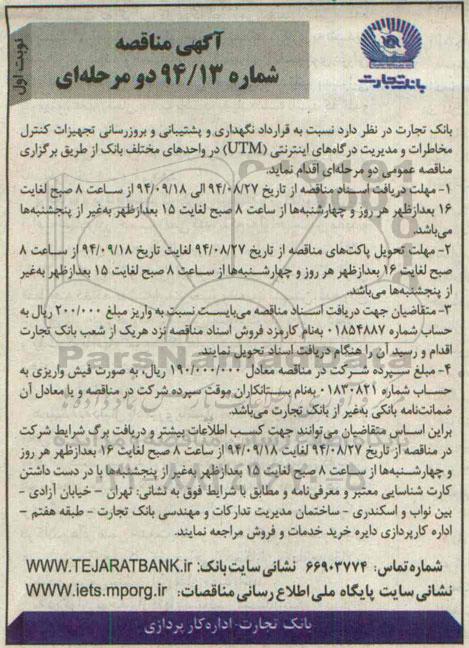 آگهی مناقصه
شماره ۹۴/۱۳ دو مرحله‌ای
نوبت اول
بانک تجارت
بانک تجارت در نظر دارد نسبت به قرارداد نگهداری و پشتیبانی و بروزرسانی تجهیزات کنترل
مخاطرات و مدیریت درگاه‌های اینترنتی (UTM) در واحدهای مختلف بانک از طریق برگزاری
مناقصه عمومی دو مرحله‌ای اقدام نماید.
۱- مهلت دریافت اسناد مناقصه از تاریخ ۹۴/۰۸/۲۷ الی ۹۴/۰۹/۱۸ از ساعت ۸ صبح لغایت
۱۶ بعدازظهر هر روز و چهارشنبه‌ها از ساعت ۸ صبح لغایت ۱۵ بعدازظهر به‌غیر از پنجشنبه‌ها
می‌باشد.
۲- مهلت تحویل پاکت‌های مناقصه از تاریخ ۹۴/۰۸/۲۷ لغایت تاریخ ۹۴/۰۹/۱۸ از ساعت ۸
صبح لغایت ۱۶ بعدازظهر هر روز و چهارشنبه‌ها از ساعت ۸ صبح لغایت ۱۵ بعدازظهر به‌غیر
از پنجشنبه‌ها می‌باشد.
۳- متقاضیان جهت دریافت اسناد مناقصه می‌بایست نسبت به واریز مبلغ ۲۰۰/۰۰۰ ریال به
حساب شماره ۰۱۸۵۴۸۸۷ به‌نام کارمزد فروش اسناد مناقصه نزد هریک از شعب بانک تجارت
اقدام و رسید آن را هنگام دریافت اسناد تحویل نمایند.
۴- مبلغ سپرده شرکت در مناقصه معادل ۱۹۰/۰۰۰/۰۰۰ ریال، به صورت فیش واریزی به
حساب شماره ۰۱۸۳۰۸۲۱ به‌نام بستانکاران موقت سپرده شرکت در مناقصه و یا معادل آن
ضمانت‌نامه بانکی به‌غیر از بانک تجارت می‌باشد.
براین اساس متقاضیان می‌توانند جهت کسب اطلاعات بیشتر و دریافت برگ شرایط شرکت
در مناقصه از تاریخ ۹۴/۰۸/۲۷ لغایت ۹۴/۰۹/۱۸ از ساعت ۸ صبح لغایت ۱۶ بعدازظهر هر روز
و چهارشنبه‌ها از ساعت ۸ صبح لغایت ۱۵ بعدازظهر به‌غیر از پنجشنبه‌ها با در دست داشتن
کارت شناسایی معتبر و معرفی‌نامه و مطابق با شرایط فوق به نشانی: تهران - خیابان آزادی -
بین نواب و اسکندری - ساختمان مدیریت تدارکات و مهندسی بانک تجارت - طبقه هفتم -
اداره کارپردازی دایره خرید خدمات و فروش مراجعه نمایند.
شماره تماس: ۶۶۹۰۳۷۷۴ نشانی سایت بانک: WWW.TEJARATBANK.ir
نشانی سایت پایگاه ملی اطلاع رسانی مناقصات: WWW.iets.mporg.ir
بانک تجارت - اداره کارپردازی